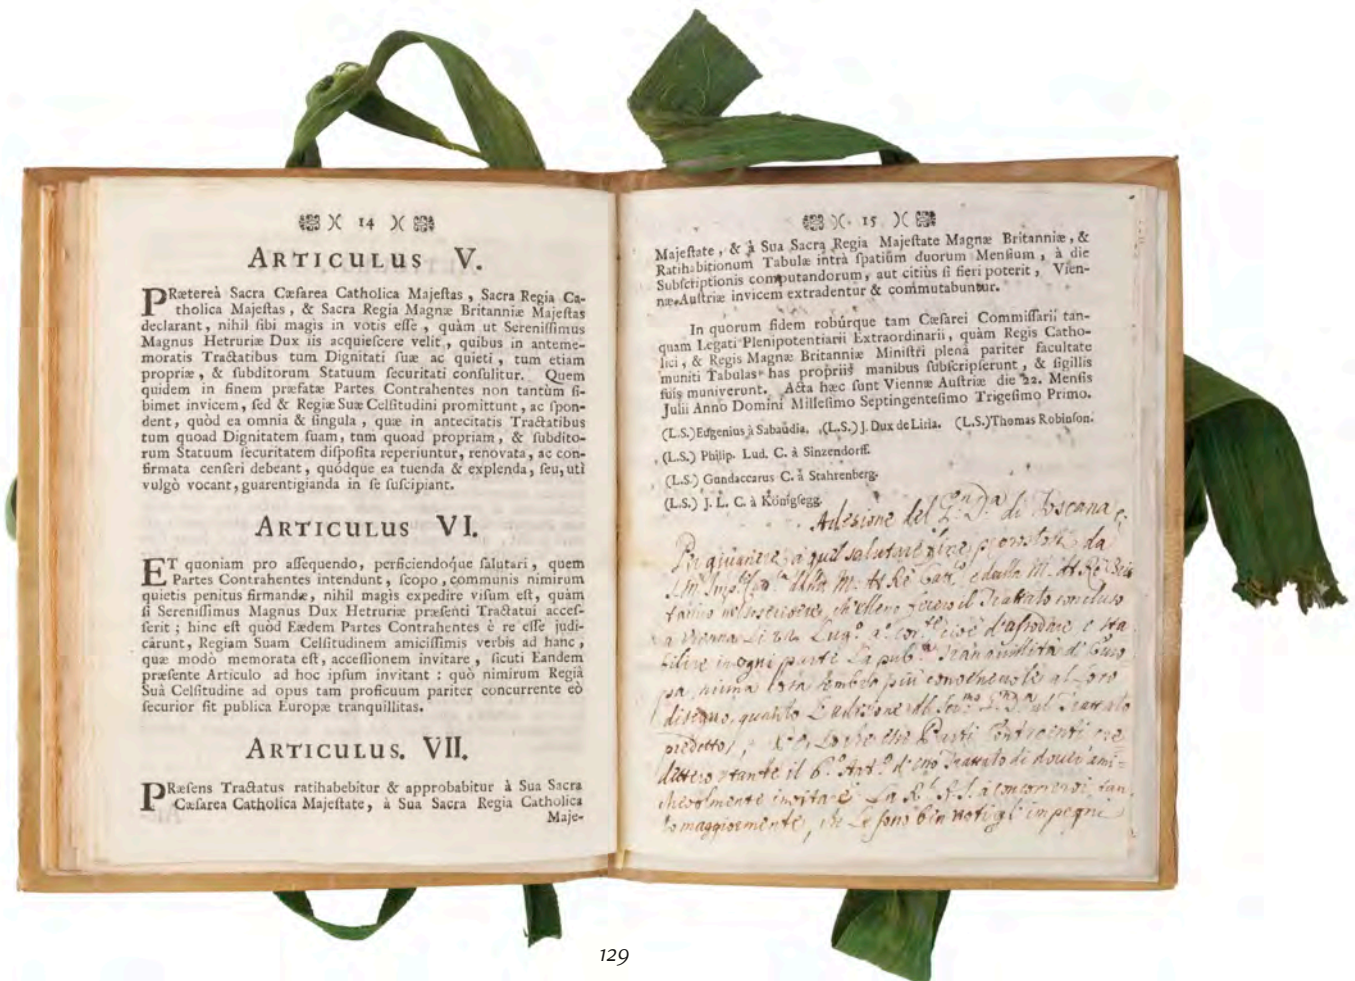 )( 14 )(
ARTICULUS V.
PRætereà Sacra Cæſarea Catholica Majeſtas, Sacra Regia Ca-
tholica Majeſtas, & Sacra Regia Magnæ Britanniæ Majeſtas
declarant, nihil ſibi magis in votis eſſe, quàm ut Sereniſſimus
Magnus Hetruriæ Dux iis acquieſcere velit, quibus in anteme-
moratis Tractatibus tum Dignitati ſuæ ac quieti, tum etiam
propriæ, & ſubditorum Statuum ſecuritati conſulitur. Quem
quidem in finem præfatæ Partes Contrahentes non tantùm ſi-
bimet invicem, ſed & Regiæ Suæ Celſitudini promittunt, ac ſpon-
dent, quòd ea omnia & ſingula, quæ in antecitatis Tractatibus
tum quoad Dignitatem ſuam, tum quoad propriam, & ſubdito-
rum Statuum ſecuritatem diſpoſita reperiuntur, renovata, ac con-
firmata cenſeri debeant, quódque ea tuenda & explenda, ſeu, utì
vulgò vocant, guarentigianda in ſe ſuſcipiant.
ARTICULUS VI.
ET quoniam pro aſſequendo, perficiendoque ſalutari, quem
Partes Contrahentes intendunt, ſcopo, communis nimirum
quietis penitus firmandæ, nihil magis expedire viſum eſt, quàm
ſi Sereniſſimus Magnus Dux Hetruriæ præſenti Tractatui acceſ-
ſerit; hinc eſt quòd Eædem Partes Contrahentes è re eſſe judi-
cârunt, Regiam Suam Celſitudinem amiciſſimis verbis ad hanc,
quæ modò memorata eſt, acceſſionem invitare, ſicuti Eandem
præſente Articulo ad hoc ipſum invitant: quò nimirum Regiâ
Suâ Celſitudine ad opus tam proficuum pariter concurrente eò
ſecurior ſit publica Europæ tranquillitas.
ARTICULUS. VII.
PRæſens Tractatus ratihabebitur & approbabitur à Sua Sacra
Cæſarea Catholica Majeſtate, à Sua Sacra Regia Catholica
Maje-
)( 15 )(
Majeſtate, & à Sua Sacra Regia Majeſtate Magnæ Britanniæ, &
Ratihabitionum Tabulæ intrà ſpatium duorum Menſium, à die
Subſcriptionis computandorum, aut citiùs ſi fieri poterit, Vien-
næ Auſtriæ invicem extradentur & commutabuntur.
In quorum fidem robúrque tam Cæſarei Commiſſarii tan-
quam Legati Plenipotentiarii Extraordinarii, quàm Regis Catho-
lici, & Regis Magnæ Britanniæ Miniſtri plenâ pariter facultate
muniti Tabulas has propriis manibus ſubſcripſerunt, & ſigillis
ſuis muniverunt. Acta hæc ſunt Viennæ Auſtriæ die 22. Menſis
Julii Anno Domini Milleſimo Septingenteſimo Trigeſimo Primo.
(L.S.) Eugenius à Sabaudia. (L.S.) J. Dux de Liria. (L.S.) Thomas Robinſon.
(L.S.) Philip. Lud. C. à Sinzendorff.
(L.S.) Gundaccarus C. à Stahrenberg.
(L.S.) J. L. C. à Königſegg.
Adesione del G. D. di Toscana
a quel salutare fine propostosi da
il Trattato concluso
a Vienna li 22. Lug.
bilire in ogni parte la pub. Tranquillità d'Euro
pa, niuna cosa sembra più convenevole al loro
disegno, quanto l'adesione del Trattato
predetto, che Parti Contraenti cre=
dettero stante il 6.º Art.º d'esso Trattato di dover ami=
chevolmente invitare la R. A. S. a concorrervi, tan
to maggiormente, che le sono ben noti gl'impegni
129